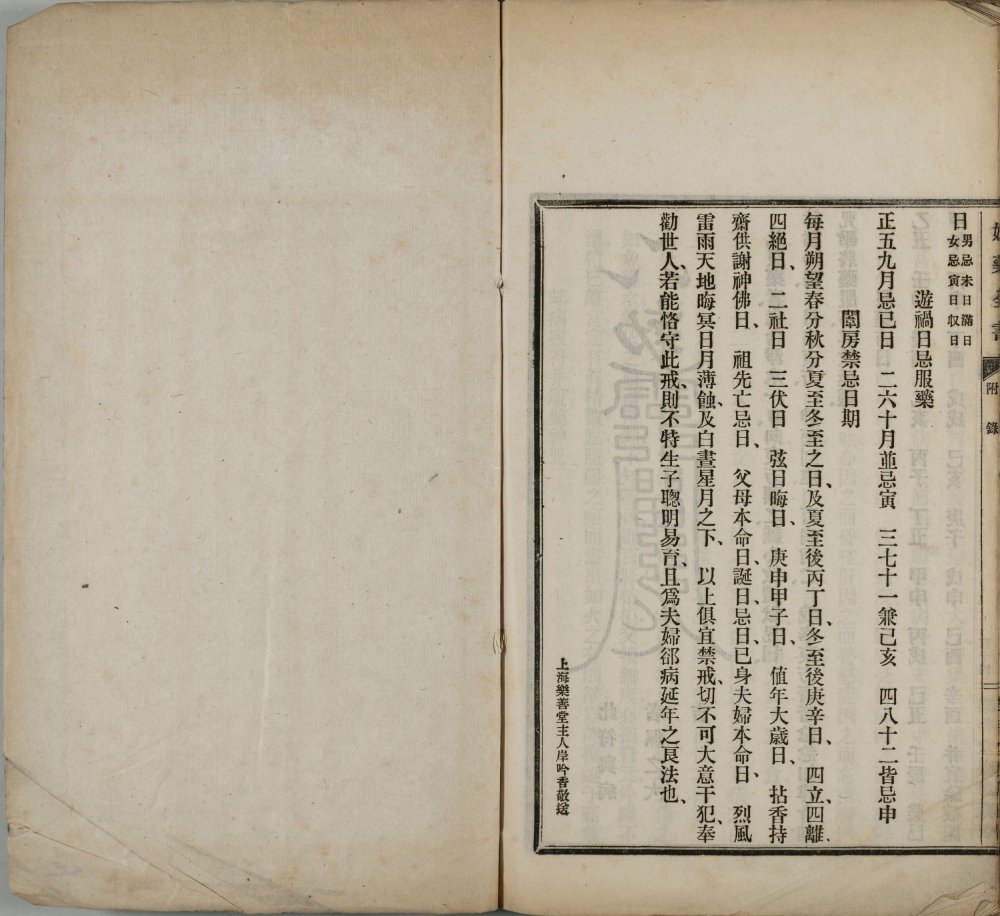 附錄
日男忌未日滿日女忌寅日収日
遊禍日忌服藥
正五九月忌巳日　二六十月並忌寅　三七十一兼己亥　四八十二皆忌申
閨房禁忌日期
每月朔望春分秋分夏至冬至之日、及夏至後丙丁日、冬至後庚辛日、四立四離、
四絕日、二社日、三伏日、弦日晦日、庚申甲子日、値年大歲日、拈香持
齋供謝神佛日、祖先亡忌日、父母本命日、誕日忌日、已身夫婦本命日、烈風
雷雨天地晦冥日月薄蝕、及白晝星月之下、以上俱宜禁戒、切不可大意干犯、奉
勸世人、若能恪守此戒、則不特生子聰明易育、且爲夫婦郤病延年之良法也、
上海樂善堂主人岸吟香敬送